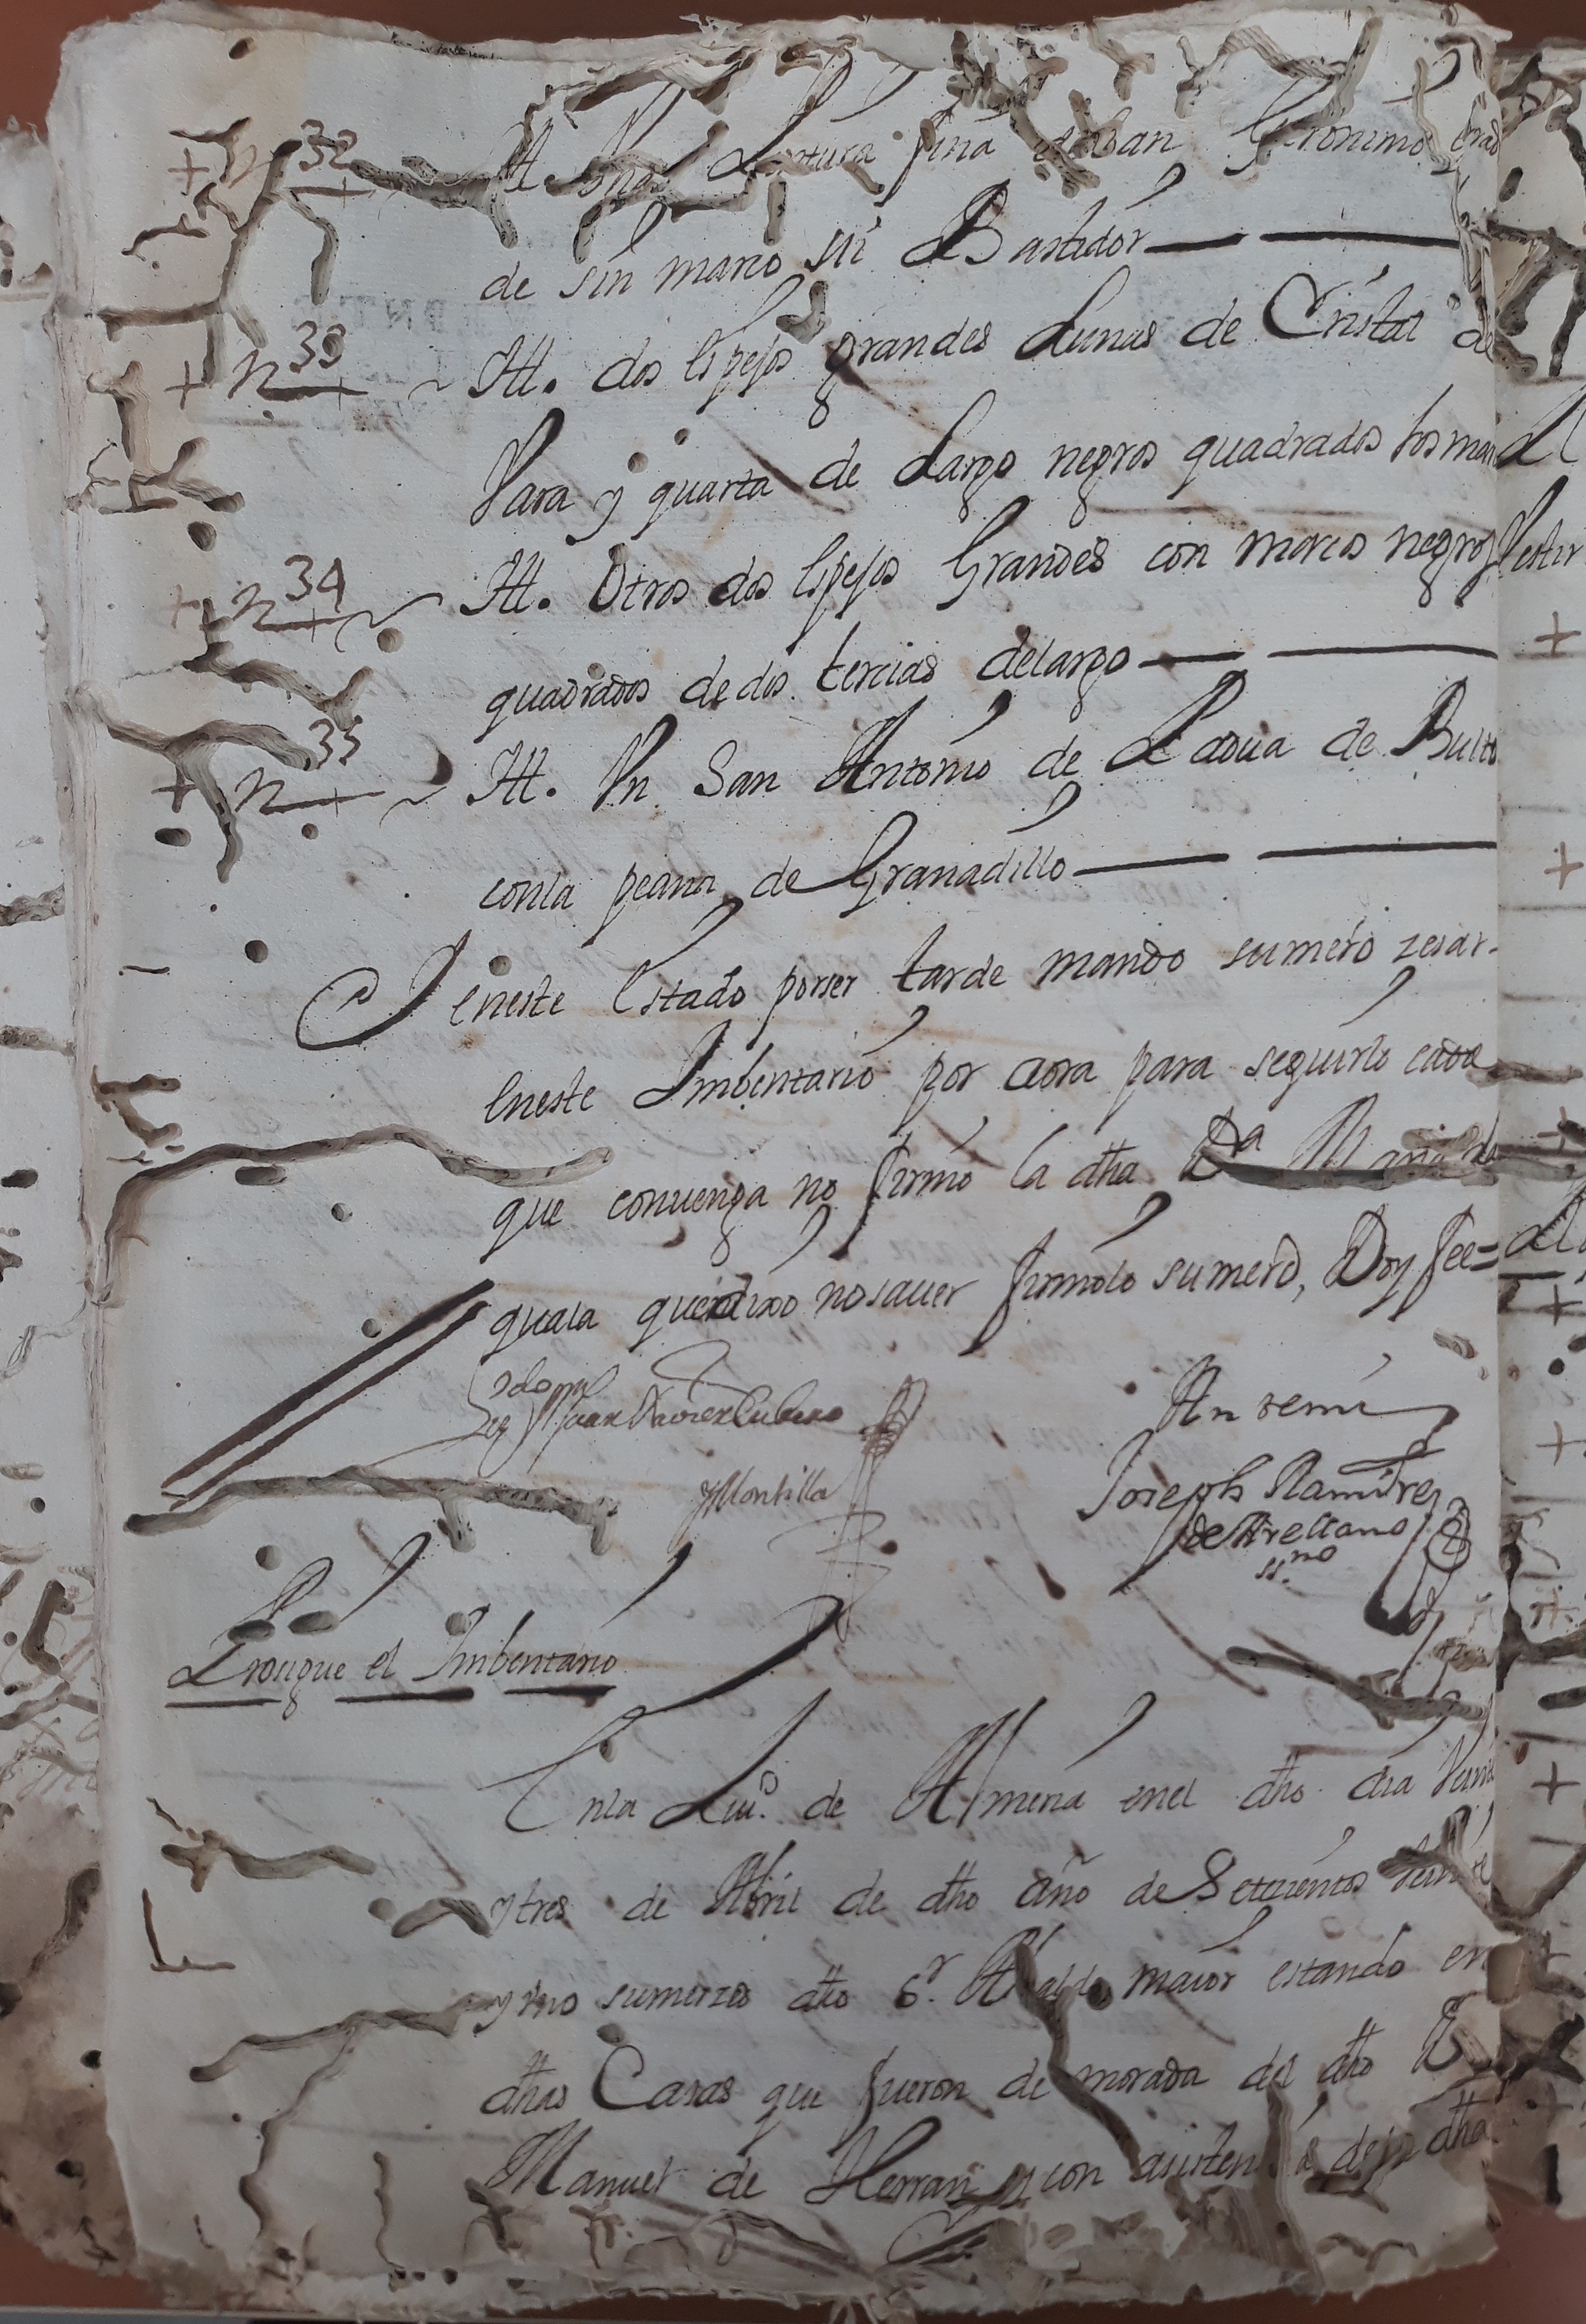 + n 32 Pintura fina Geronimo
de sin marco su Bastidor
+ n 33 Itt. dos espejos grandes Lunas de Cristal de
Vara y quarta de Largo negros quadrados los mar
+ n 34 Itt. Otros dos espejos Grandes con marcos negros
quadrados de dos tercias de largo
+ n 35 Itt. Vn San Antonio de Padua de Bulto
con la peana de Granadillo
Y eneste Estado por ser tarde mando sumerd zesar
eneste Imbentario por aora para seguirlo cada
que convenga no firmo la dha Da
quala que dixo no saver firmolo sumerd, Doy fee=
Juan Xavier Cubero
y Montilla
Ante mi
Joseph Ramirez
de Arellano
ssno
Prosigue el Imbentario
En la Ciud. de Almeria enel dho dia
y tres de Abril de dho año de Setecientos
y sumerzed dho Sr. Alcalde maior estando en
dhas Casas que fueron de morada del dho D
Manuel de Herran y con asistencia de la dha